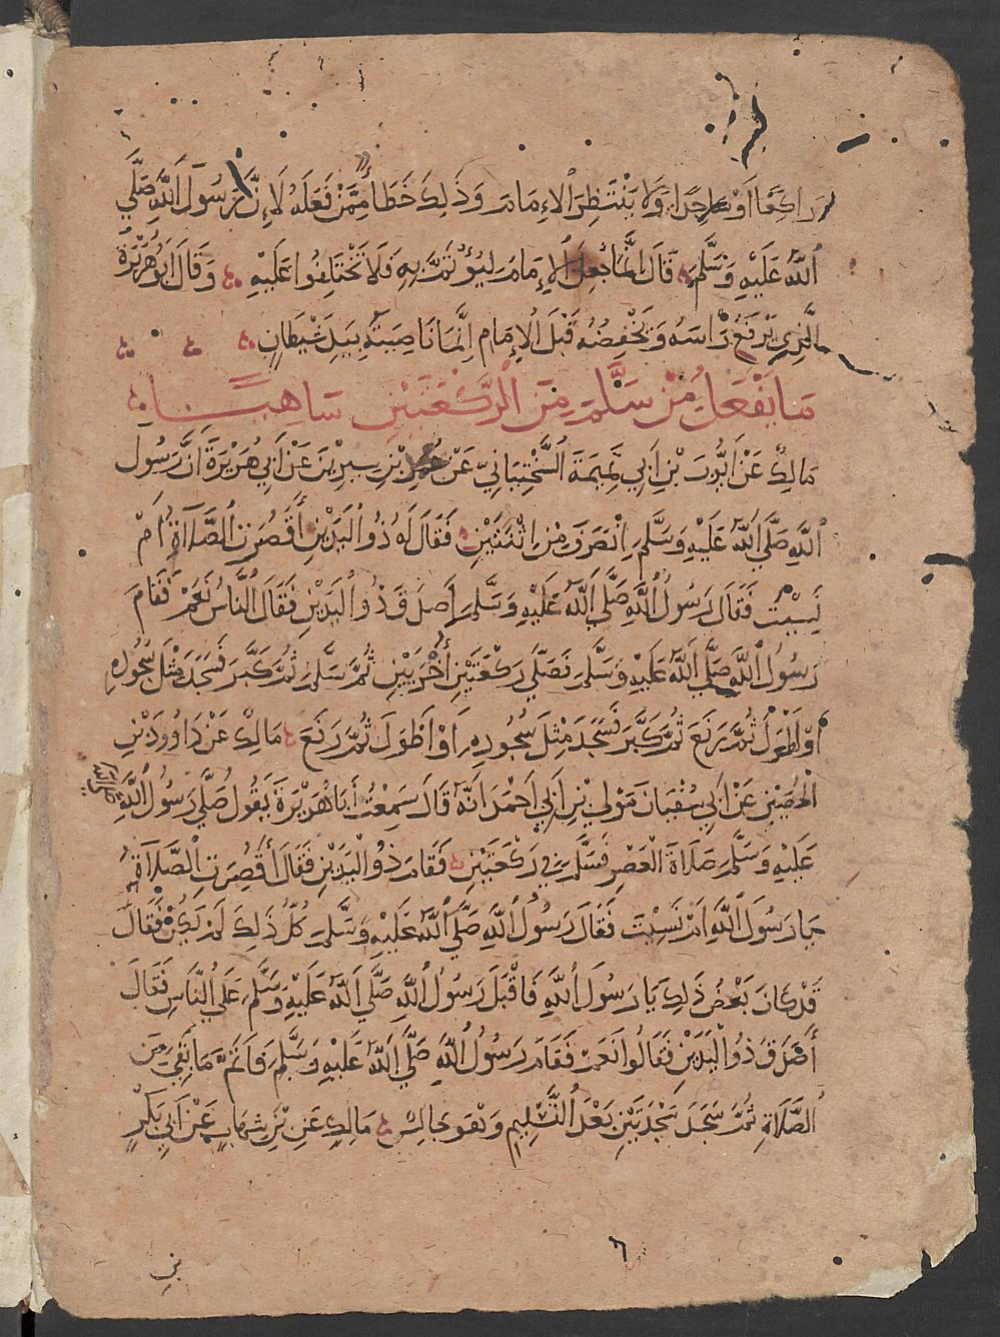 رَاكِعًا أَوْ سَاجِدًا وَلَا يَنْتَظِرَ الْإِمَامَ وَذَلِكَ خَطَأٌ مِمَّنْ فَعَلَهُ لِأَنَّ رَسُولَ اللَّهِ صَلَّى
اللَّهُ عَلَيْهِ وَسَلَّمَ قَالَ إِنَّمَا جُعِلَ الْإِمَامُ لِيُؤْتَمَّ بِهِ فَلَا تَخْتَلِفُوا عَلَيْهِ وَقَالَ أَبُو هُرَيْرَةَ
الَّذِي يَرْفَعُ رَأْسَهُ وَيَخْفِضُهُ قَبْلَ الْإِمَامِ إِنَّمَا نَاصِيَتُهُ بِيَدِ شَيْطَانٍ
مَا يَفْعَلُ مَنْ سَلَّمَ مِنَ الرَّكْعَتَيْنِ سَاهِيًا
مَالِكٌ عَنْ أَيُّوبَ بْنِ أَبِي تَمِيمَةَ السَّخْتِيَانِيِّ عَنْ مُحَمَّدِ بْنِ سِيرِينَ عَنْ أَبِي هُرَيْرَةَ أَنَّ رَسُولَ
اللَّهِ صَلَّى اللَّهُ عَلَيْهِ وَسَلَّمَ انْصَرَفَ مِنَ اثْنَتَيْنِ فَقَالَ لَهُ ذُو الْيَدَيْنِ أَقَصُرَتِ الصَّلَاةُ أَمْ
نَسِيتَ فَقَالَ رَسُولُ اللَّهِ صَلَّى اللَّهُ عَلَيْهِ وَسَلَّمَ أَصَدَقَ ذُو الْيَدَيْنِ فَقَالَ النَّاسُ نَعَمْ فَقَامَ
رَسُولُ اللَّهِ صَلَّى اللَّهُ عَلَيْهِ وَسَلَّمَ فَصَلَّى رَكْعَتَيْنِ أُخْرَيَيْنِ ثُمَّ سَلَّمَ ثُمَّ كَبَّرَ فَسَجَدَ مِثْلَ سُجُودِهِ
أَوْ أَطْوَلَ ثُمَّ رَفَعَ ثُمَّ كَبَّرَ فَسَجَدَ مِثْلَ سُجُودِهِ أَوْ أَطْوَلَ ثُمَّ رَفَعَ مَالِكٌ عَنْ دَاوُودَ بْنِ
الْحُصَيْنِ عَنْ أَبِي سُفْيَانَ مَوْلَى بْنِ أَبِي أَحْمَدَ أَنَّهُ قَالَ سَمِعْتُ أَبَا هُرَيْرَةَ يَقُولُ صَلَّى رَسُولُ اللَّهِ
عَلَيْهِ وَسَلَّمَ صَلَاةَ الْعَصْرِ فَسَلَّمَ فِي رَكْعَتَيْنِ فَقَامَ ذُو الْيَدَيْنِ فَقَالَ أَقَصُرَتِ الصَّلَاةُ
يَا رَسُولَ اللَّهِ أَمْ نَسِيتَ فَقَالَ رَسُولُ اللَّهِ صَلَّى اللَّهُ عَلَيْهِ وَسَلَّمَ كُلُّ ذَلِكَ لَمْ يَكُنْ فَقَالَ
قَدْ كَانَ بَعْضُ ذَلِكَ يَا رَسُولَ اللَّهِ فَأَقْبَلَ رَسُولُ اللَّهِ صَلَّى اللَّهُ عَلَيْهِ وَسَلَّمَ عَلَى النَّاسِ فَقَالَ
أَصَدَقَ ذُو الْيَدَيْنِ فَقَالُوا نَعَمْ فَقَامَ رَسُولُ اللَّهِ صَلَّى اللَّهُ عَلَيْهِ وَسَلَّمَ فَأَتَمَّ مَا بَقِيَ مِنَ
الصَّلَاةِ ثُمَّ سَجَدَ سَجْدَتَيْنِ بَعْدَ التَّسْلِيمِ وَهْوَ جَالِسٌ مَالِكٌ عَنِ بْنِ شِهَابٍ عَنْ أَبِي بَكْرِ
بْنِ